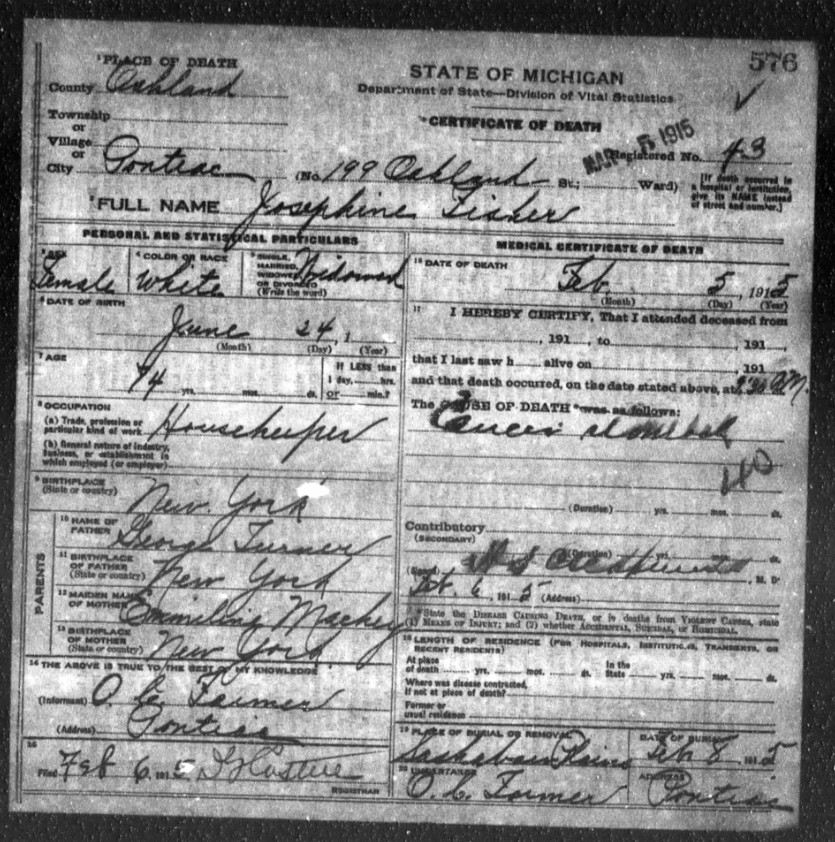 576
¹PLACE OF DEATH
County Oakland
Township
or
Village
or
City Pontiac
STATE OF MICHIGAN
Department of State—Division of Vital Statistics
CERTIFICATE OF DEATH
MAR 5 1915
Registered No. 43
(No. 199 Oakland St.; Ward)
[If death occurred in
a hospital or institution,
give its NAME instead
of street and number.]
FULL NAME Josephine Fisher
PERSONAL AND STATISTICAL PARTICULARS
Female
⁴ COLOR OR RACE
White
⁵ SINGLE,
MARRIED,
WIDOWED
OR DIVORCED
(Write the word)
Widowed
⁶ DATE OF BIRTH
June 24, 1
(Month) (Day) (Year)
⁷ AGE
74 yrs. mos. ds.
If LESS than
1 day, hrs.
or min.?
⁸ OCCUPATION
(a) Trade, profession or
particular kind of work
Housekeeper
(b) General nature of industry,
business, or establishment in
which employed (or employer)
⁹ BIRTHPLACE
(State or country)
New York
PARENTS
¹⁰ NAME OF
FATHER
George Turner
¹¹ BIRTHPLACE
OF FATHER
(State or country)
New York
¹² MAIDEN NAME
OF MOTHER
Mackey
¹³ BIRTHPLACE
OF MOTHER
(State or country)
New York
¹⁴ THE ABOVE IS TRUE TO THE BEST OF MY KNOWLEDGE
(Informant) O. C. Farmer
(Address) Pontiac
Filed Feb 6, 1915
REGISTRAR
MEDICAL CERTIFICATE OF DEATH
¹⁶ DATE OF DEATH
Feb. 5, 1915
(Month) (Day) (Year)
¹⁷ I HEREBY CERTIFY, That I attended deceased from
, 191 , to , 191 ,
that I last saw h alive on , 191
and that death occurred, on the date stated above, at M.
The CAUSE OF DEATH was as follows:
Cancer stomach
40
(Duration) yrs. mos. ds.
Contributory
(SECONDARY)
(Duration) yrs. mos. ds.
(Signed) M. D.
Feb. 6, 1915 (Address)
*State the DISEASE CAUSING DEATH, or in deaths from VIOLENT CAUSES, state
(1) MEANS OF INJURY; and (2) whether ACCIDENTAL, SUICIDAL, or HOMICIDAL.
¹⁸ LENGTH OF RESIDENCE (FOR HOSPITALS, INSTITUTIONS, TRANSIENTS, OR
RECENT RESIDENTS)
At place
of death yrs. mos. ds.
In the
State yrs. mos. ds.
Where was disease contracted,
if not at place of death?
Former or
usual residence
¹⁹ PLACE OF BURIAL OR REMOVAL
Sashabaw Plains
DATE OF BURIAL
Feb 8, 1915
²⁰ UNDERTAKER
O. C. Farmer
ADDRESS
Pontiac